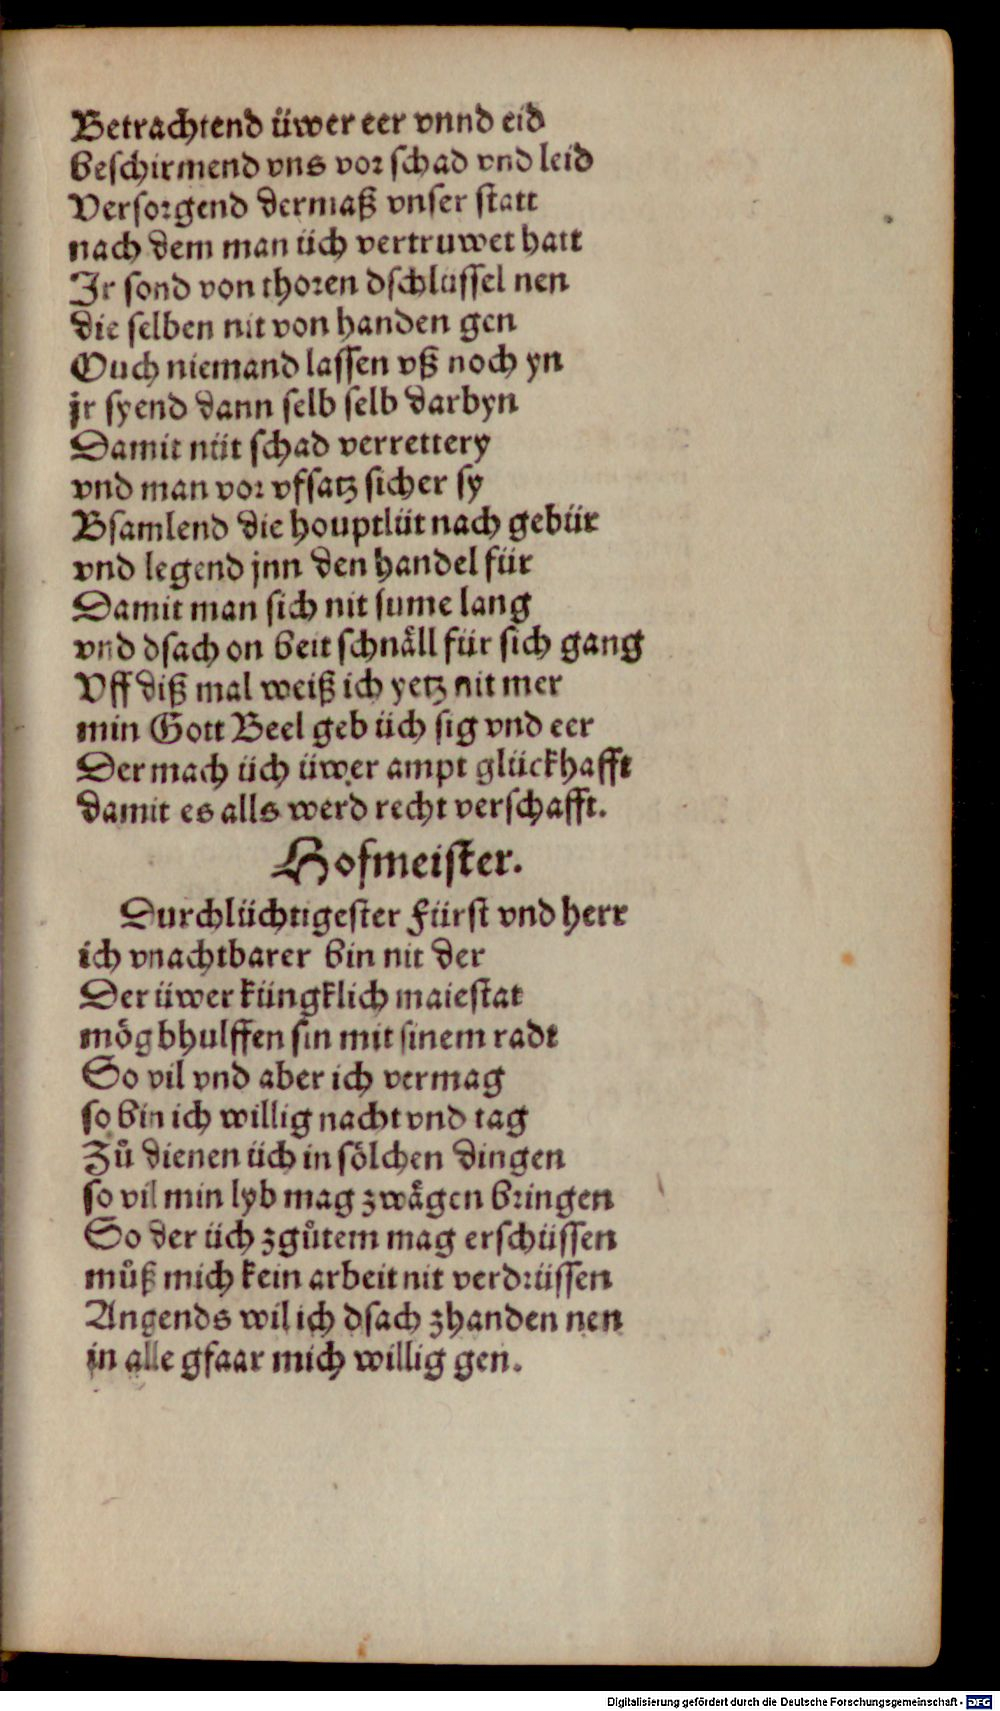 Betrachtend üwer eer vnnd eid
beschirmend vns vor schad vnd leid
Versorgend dermaß vnser statt
nach dem man üch vertruwet hatt
Jr sond von thoren dschlüssel nen
die selben nit von handen gen
Ouch niemand lassen vß noch yn
jr syend dann selb selb darbyn
Damit nüt schad verrettery
vnd man vor vfsatz sicher sy
Bsamlend die houptlüt nach gebür
vnd legend jnn den handel für
Damit man sich nit sume lang
vnd dsach on beit schnäll für sich gang
Vff diß mal weiß ich yetz nit mer
min Gott Beel geb üch sig vnd eer
Der mach üch üwer ampt glückhafft
damit es alls werd recht verschafft.
Hofmeister.
Durchlüchtigester Fürst vnd herr
ich vnachtbarer bin nit der
Der üwer küngklich maiestat
mög bhulffen sin mit sinem radt
So vil vnd aber ich vermag
so bin ich willig nacht vnd tag
Zů dienen üch in sölchen dingen
so vil min lyb mag zwägen bringen
So der üch zgůtem mag erschüssen
můß mich kein arbeit nit verdrüssen
Angends wil ich dsach zhanden nen
in alle gfaar mich willig gen.
Digitalisierung gefördert durch die Deutsche Forschungsgemeinschaft - DFG